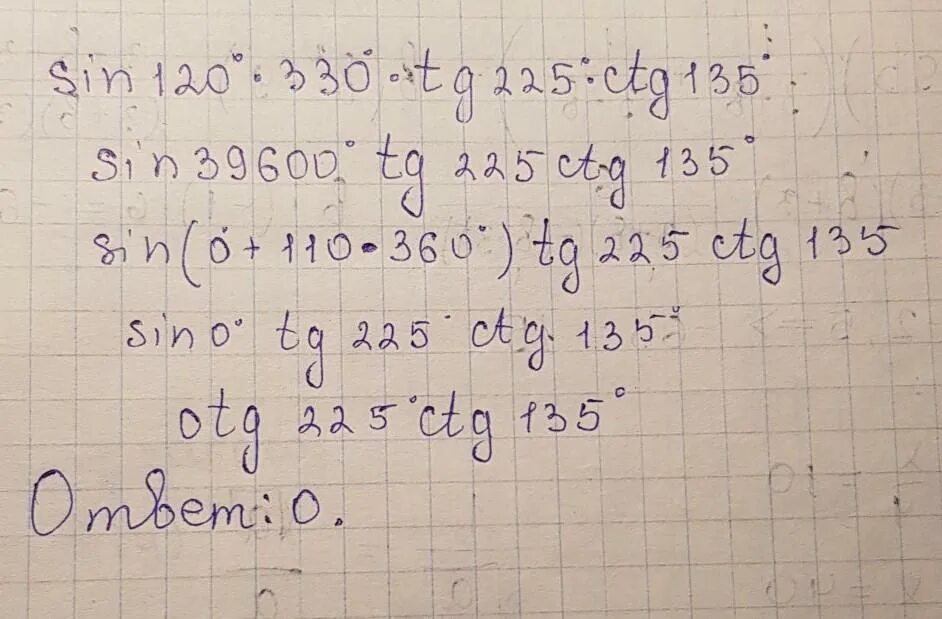 sin 120° · 330° · tg 225° · ctg 135°
sin 39600° tg 225 ctg 135°
sin (0° + 110 · 360°) tg 225 ctg 135
sin 0° tg 225° ctg 135°
0 tg 225° ctg 135°
Ответ: 0.